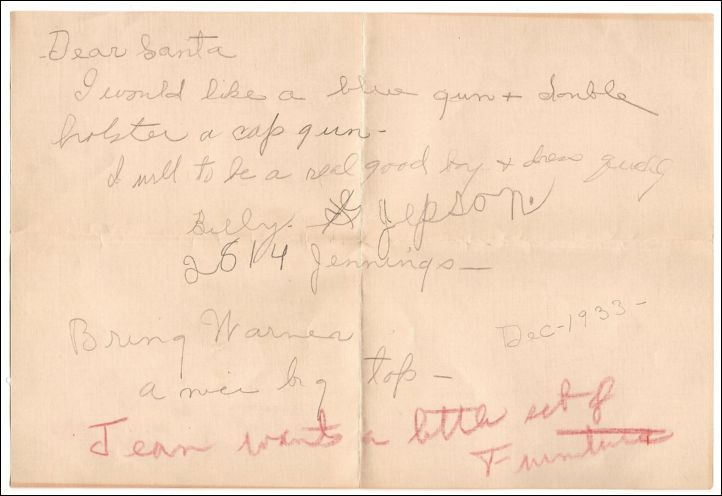 Dear Santa
I would like a blue gun + double
holster a cap gun-
I will to be a real good boy + dress quickly
Billy. Jepson.
2814 Jennings-
Dec-1933-
Bring Warner
a nice big top-
Jean wants a little set of
Furniture